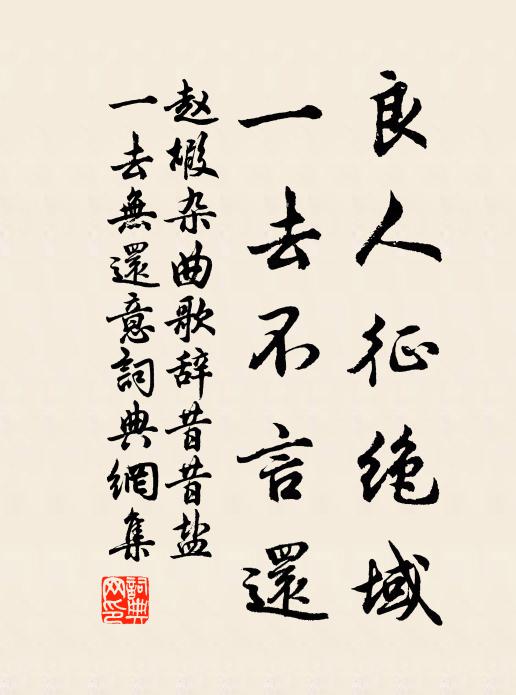 良人征绝域
一去不言還
赵嘏杂曲歌辞昔昔盐
一去無還意詞典網集
詞典網印